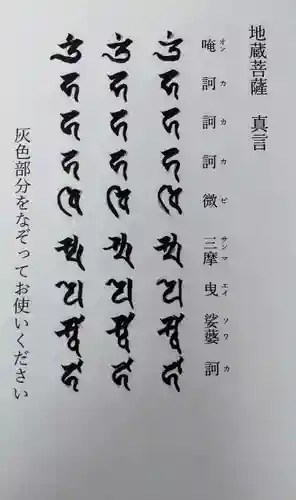 地蔵菩薩 真言
唵 訶 訶 訶 微 三摩 曳 娑婆 訶
オン カ カ カ ビ サンマ エイ ソワ カ
𑖌𑖼 𑖮 𑖮 𑖮 𑖪𑖰 𑖭𑖿𑖦 𑖧𑖸 𑖭𑖿𑖪𑖯 𑖮𑖯
𑖌𑖼 𑖮 𑖮 𑖮 𑖪𑖰 𑖭𑖿𑖦 𑖧𑖸 𑖭𑖿𑖪𑖯 𑖮𑖯
𑖌𑖼 𑖮 𑖮 𑖮 𑖪𑖰 𑖭𑖿𑖦 𑖧𑖸 𑖭𑖿𑖪𑖯 𑖮𑖯
灰色部分をなぞってお使いください